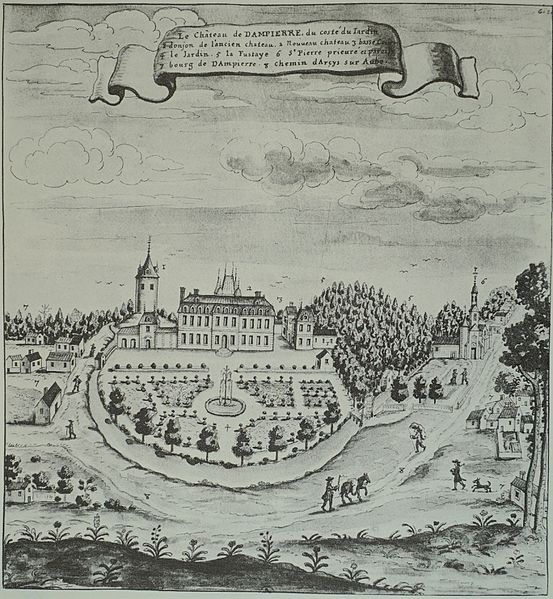 Le Château de DAMPIERRE. du costé du Jardin
1 donjon de lancien chateau. 2 Nouveau chateau 3 basse Cour
4 le Jardin. 5 la Fustaye 6 St Pierre prieuré et
7 bourg de DAmpierre. 8 chemin dArcys sur Aube.
7
1
2
3
5
6
4
7
7
8
8